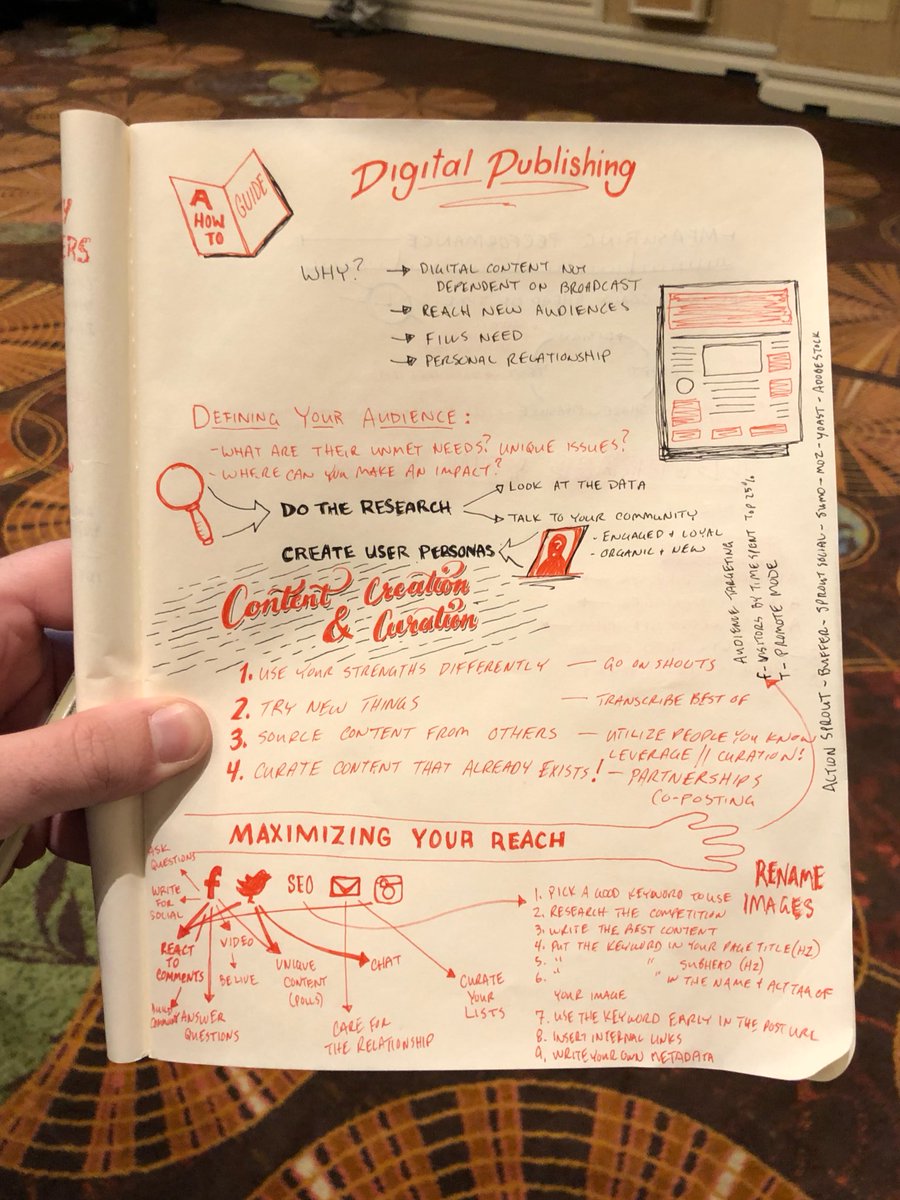 A
HOW
TO
GUIDE
Digital Publishing
ERS
WHY?
→ DIGITAL CONTENT NOT
DEPENDENT ON BROADCAST
→ REACH NEW AUDIENCES
→ FILLS NEED
→ PERSONAL RELATIONSHIP
DEFINING YOUR AUDIENCE:
- WHAT ARE THEIR UNMET NEEDS? UNIQUE ISSUES?
- WHERE CAN YOU MAKE AN IMPACT?
DO THE RESEARCH
LOOK AT THE DATA
TALK TO YOUR COMMUNITY
- ENGAGED + LOYAL
- ORGANIC + NEW
CREATE USER PERSONAS
Content Creation
& Curation
1. USE YOUR STRENGTHS DIFFERENTLY — GO ON SHOUTS
2. TRY NEW THINGS — TRANSCRIBE BEST OF
3. SOURCE CONTENT FROM OTHERS — UTILIZE PEOPLE YOU KNOW
LEVERAGE // CURATION!
4. CURATE CONTENT THAT ALREADY EXISTS! — PARTNERSHIPS
CO-POSTING
AUDIENCE TARGETING
F - VISITORS BY TIME SPENT TOP 25%
T - PROMOTE MODE
ACTION SPROUT - BUFFER - SPROUT SOCIAL - SUMO - MOZ - YOAST - ADOBESTOCK
MAXIMIZING YOUR REACH
ASK
QUESTIONS
WRITE
FOR
SOCIAL
f
SEO
REACT
TO
COMMENTS
VIDEO
BE LIVE
UNIQUE
CONTENT
(POLLS)
CHAT
CURATE
YOUR
LISTS
ANSWER
QUESTIONS
CARE FOR
THE RELATIONSHIP
RENAME
IMAGES
1. PICK A GOOD KEYWORD TO USE
2. RESEARCH THE COMPETITION
3. WRITE THE BEST CONTENT
4. PUT THE KEYWORD IN YOUR PAGE TITLE (H2)
5. " " SUBHEAD (H2)
6. " " IN THE NAME + ALT TAG OF
YOUR IMAGE
7. USE THE KEYWORD EARLY IN THE POST URL
8. INSERT INTERNAL LINKS
9. WRITE YOUR OWN METADATA